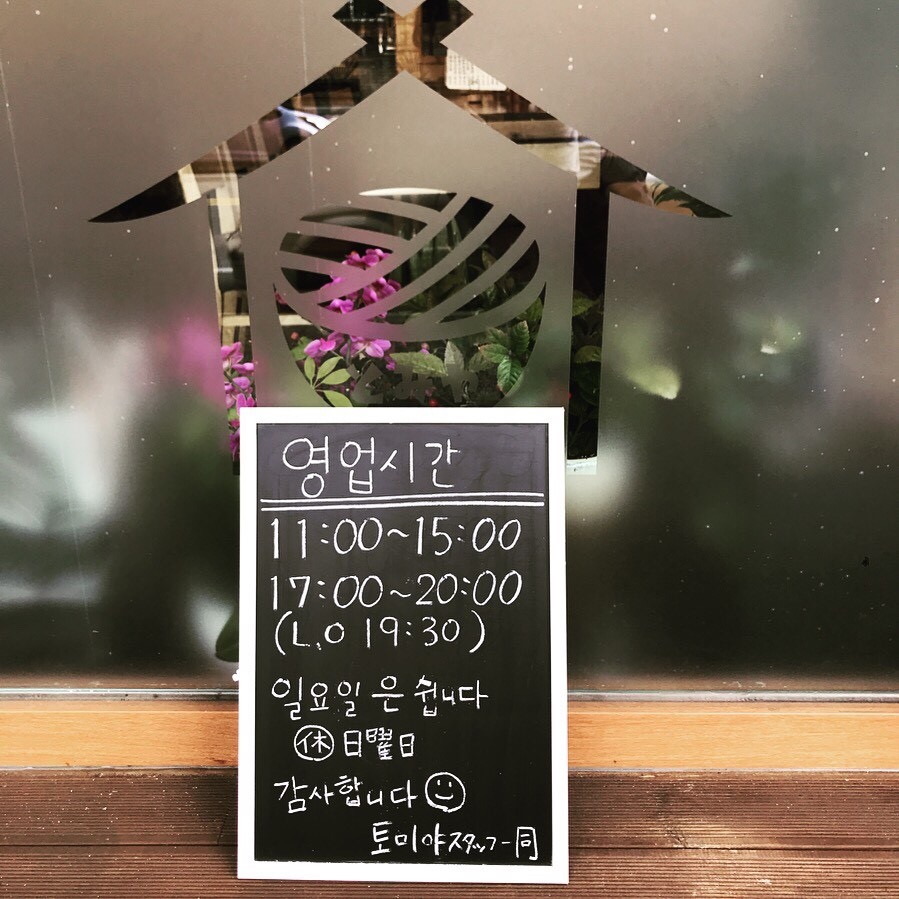 영업시간
11:00~15:00
17:00~20:00
(L.O 19:30)
일요일은 쉽니다
㊡日曜日
감사합니다
토미야スタッフ一同